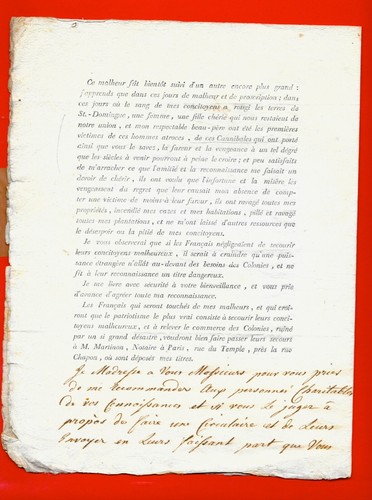 2
Ce malheur fût bientôt suivi d'un autre encore plus grand :
j'apprends que dans ces jours de malheur et de proscription ; dans
ces jours où le sang de mes concitoyens a rougi les terres de
St.-Domingue, une femme, une fille chérie qui nous restaient de
notre union, et mon respectable beau-père ont été les premières
victimes de ces hommes atroces, de ces Cannibales qui ont porté
ainsi que vous le savez, la fureur et la vengeance à un tel dégré
que les siècles à venir pourront à peine le croire ; et peu satisfaits
de m'arracher ce que l'amitié et la reconnaissance me faisait un
devoir de chérir, ils ont voulu que l'infortune et la misère les
vengeassent du regret que leur causait mon absence de comp-
ter une victime de moins à leur fureur, ils ont ravagé toutes mes
propriétés, incendié mes cazes et mes habitations, pillé et ravagé
toutes mes plantations, et ne m'ont laissé d'autres ressources que
le désespoir ou la pitié de mes concitoyens.
Je vous observerai que si les Français négligeaient de secourir
leurs concitoyens malheureux, il serait à craindre qu'une puis-
sance étrangère n'allât au-devant des besoins des Colonies, et ne
fit à leur reconnaissance un titre dangereux.
Je me livre avec sécurité à votre bienveillance, et vous prie
d'avance d'agréer toute ma reconnaissance.
Les Français qui seront touchés de mes malheurs, et qui croi-
ront que le patriotisme le plus vrai consiste à secourir leurs conci-
toyens malheureux, et à relever le commerce des Colonies, ruiné
par un si grand désastre, voudront bien faire passer leurs secours
à M. Martinon, Notaire à Paris, rue du Temple, près la rue
Chapon, où sont déposés mes titres.
Je Madresse a Vous Messieurs pour vous pries
de me Recommander aux personnes Charitables
de vos Connoissances et si vous Le juger à
propos de faire une Circulaire et de Leurs
Envoyer en Leurs faissant part que Vous